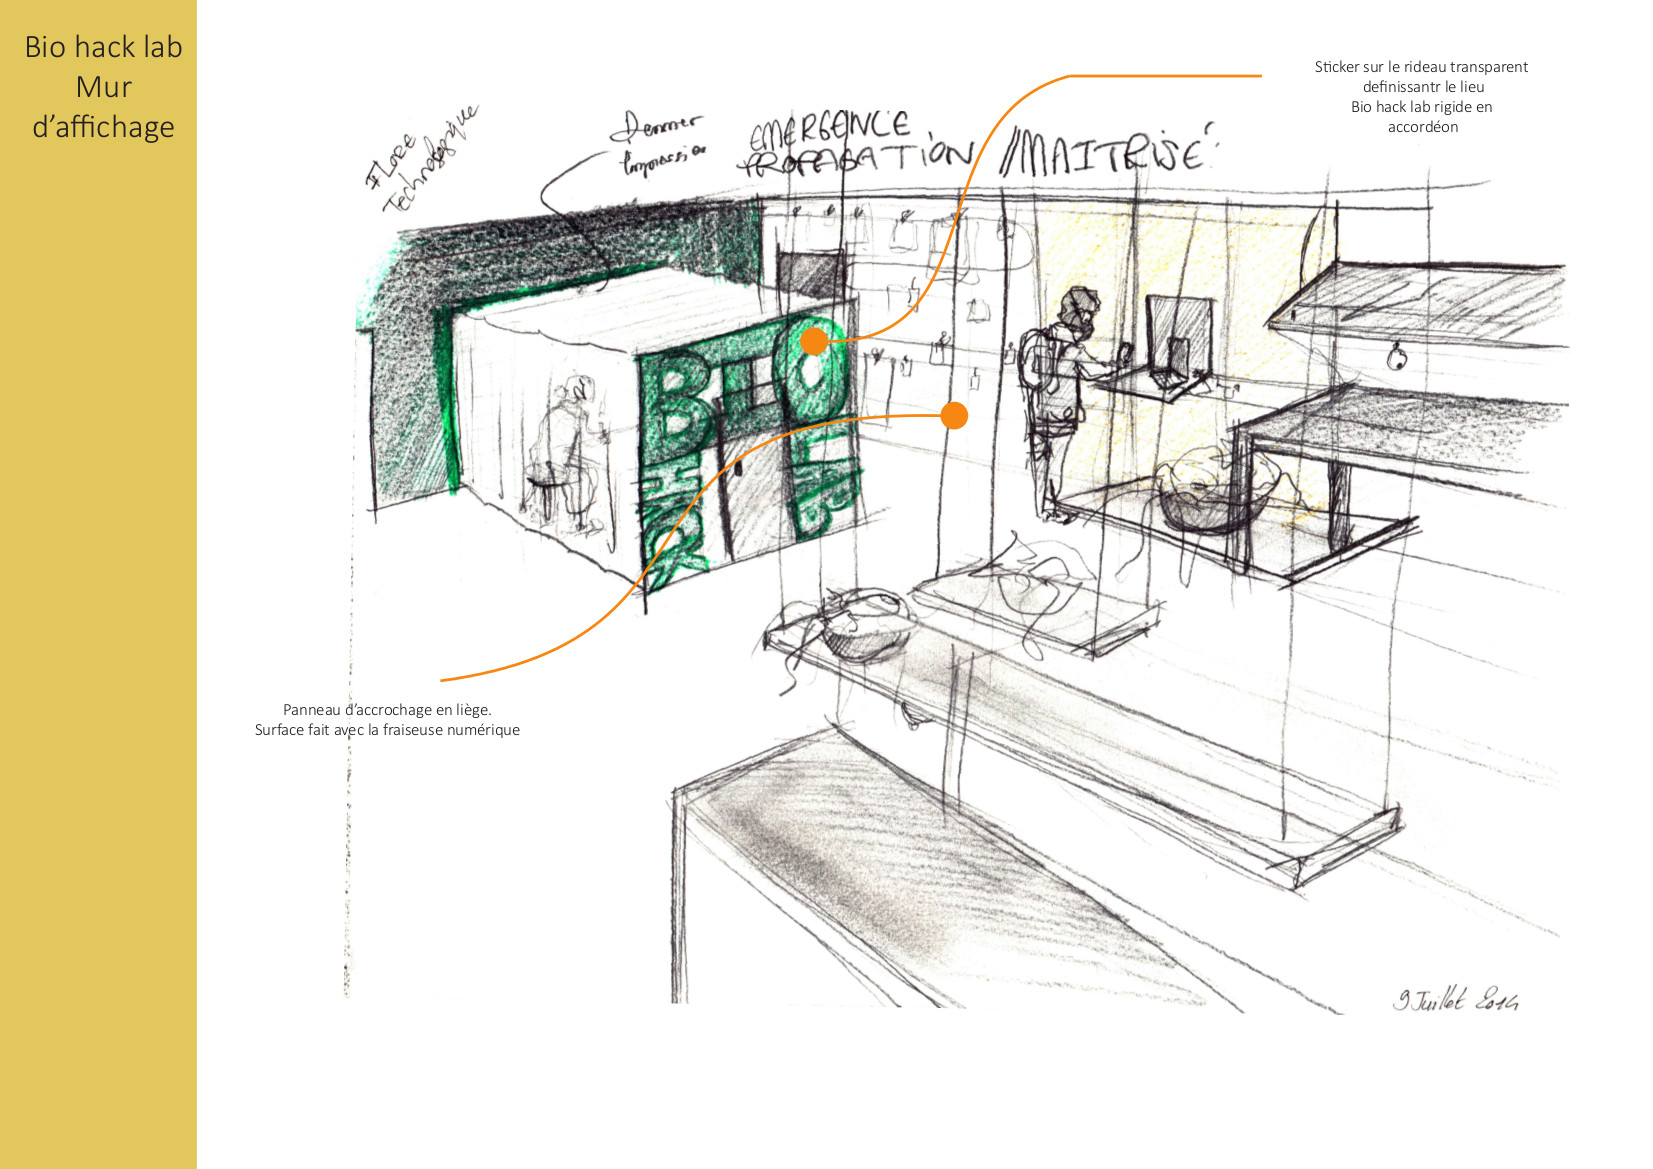 Bio hack lab
Mur
d’affichage
Sticker sur le rideau transparent
definissantr le lieu
Bio hack lab rigide en
accordéon
FLORE
Technologique
Dernier
Impression
EMERGENCE
PROPAGATION //MAITRISÉ
BIO
HACK
LAB
Panneau d’accrochage en liège.
Surface fait avec la fraiseuse numérique
9 Juillet 2014